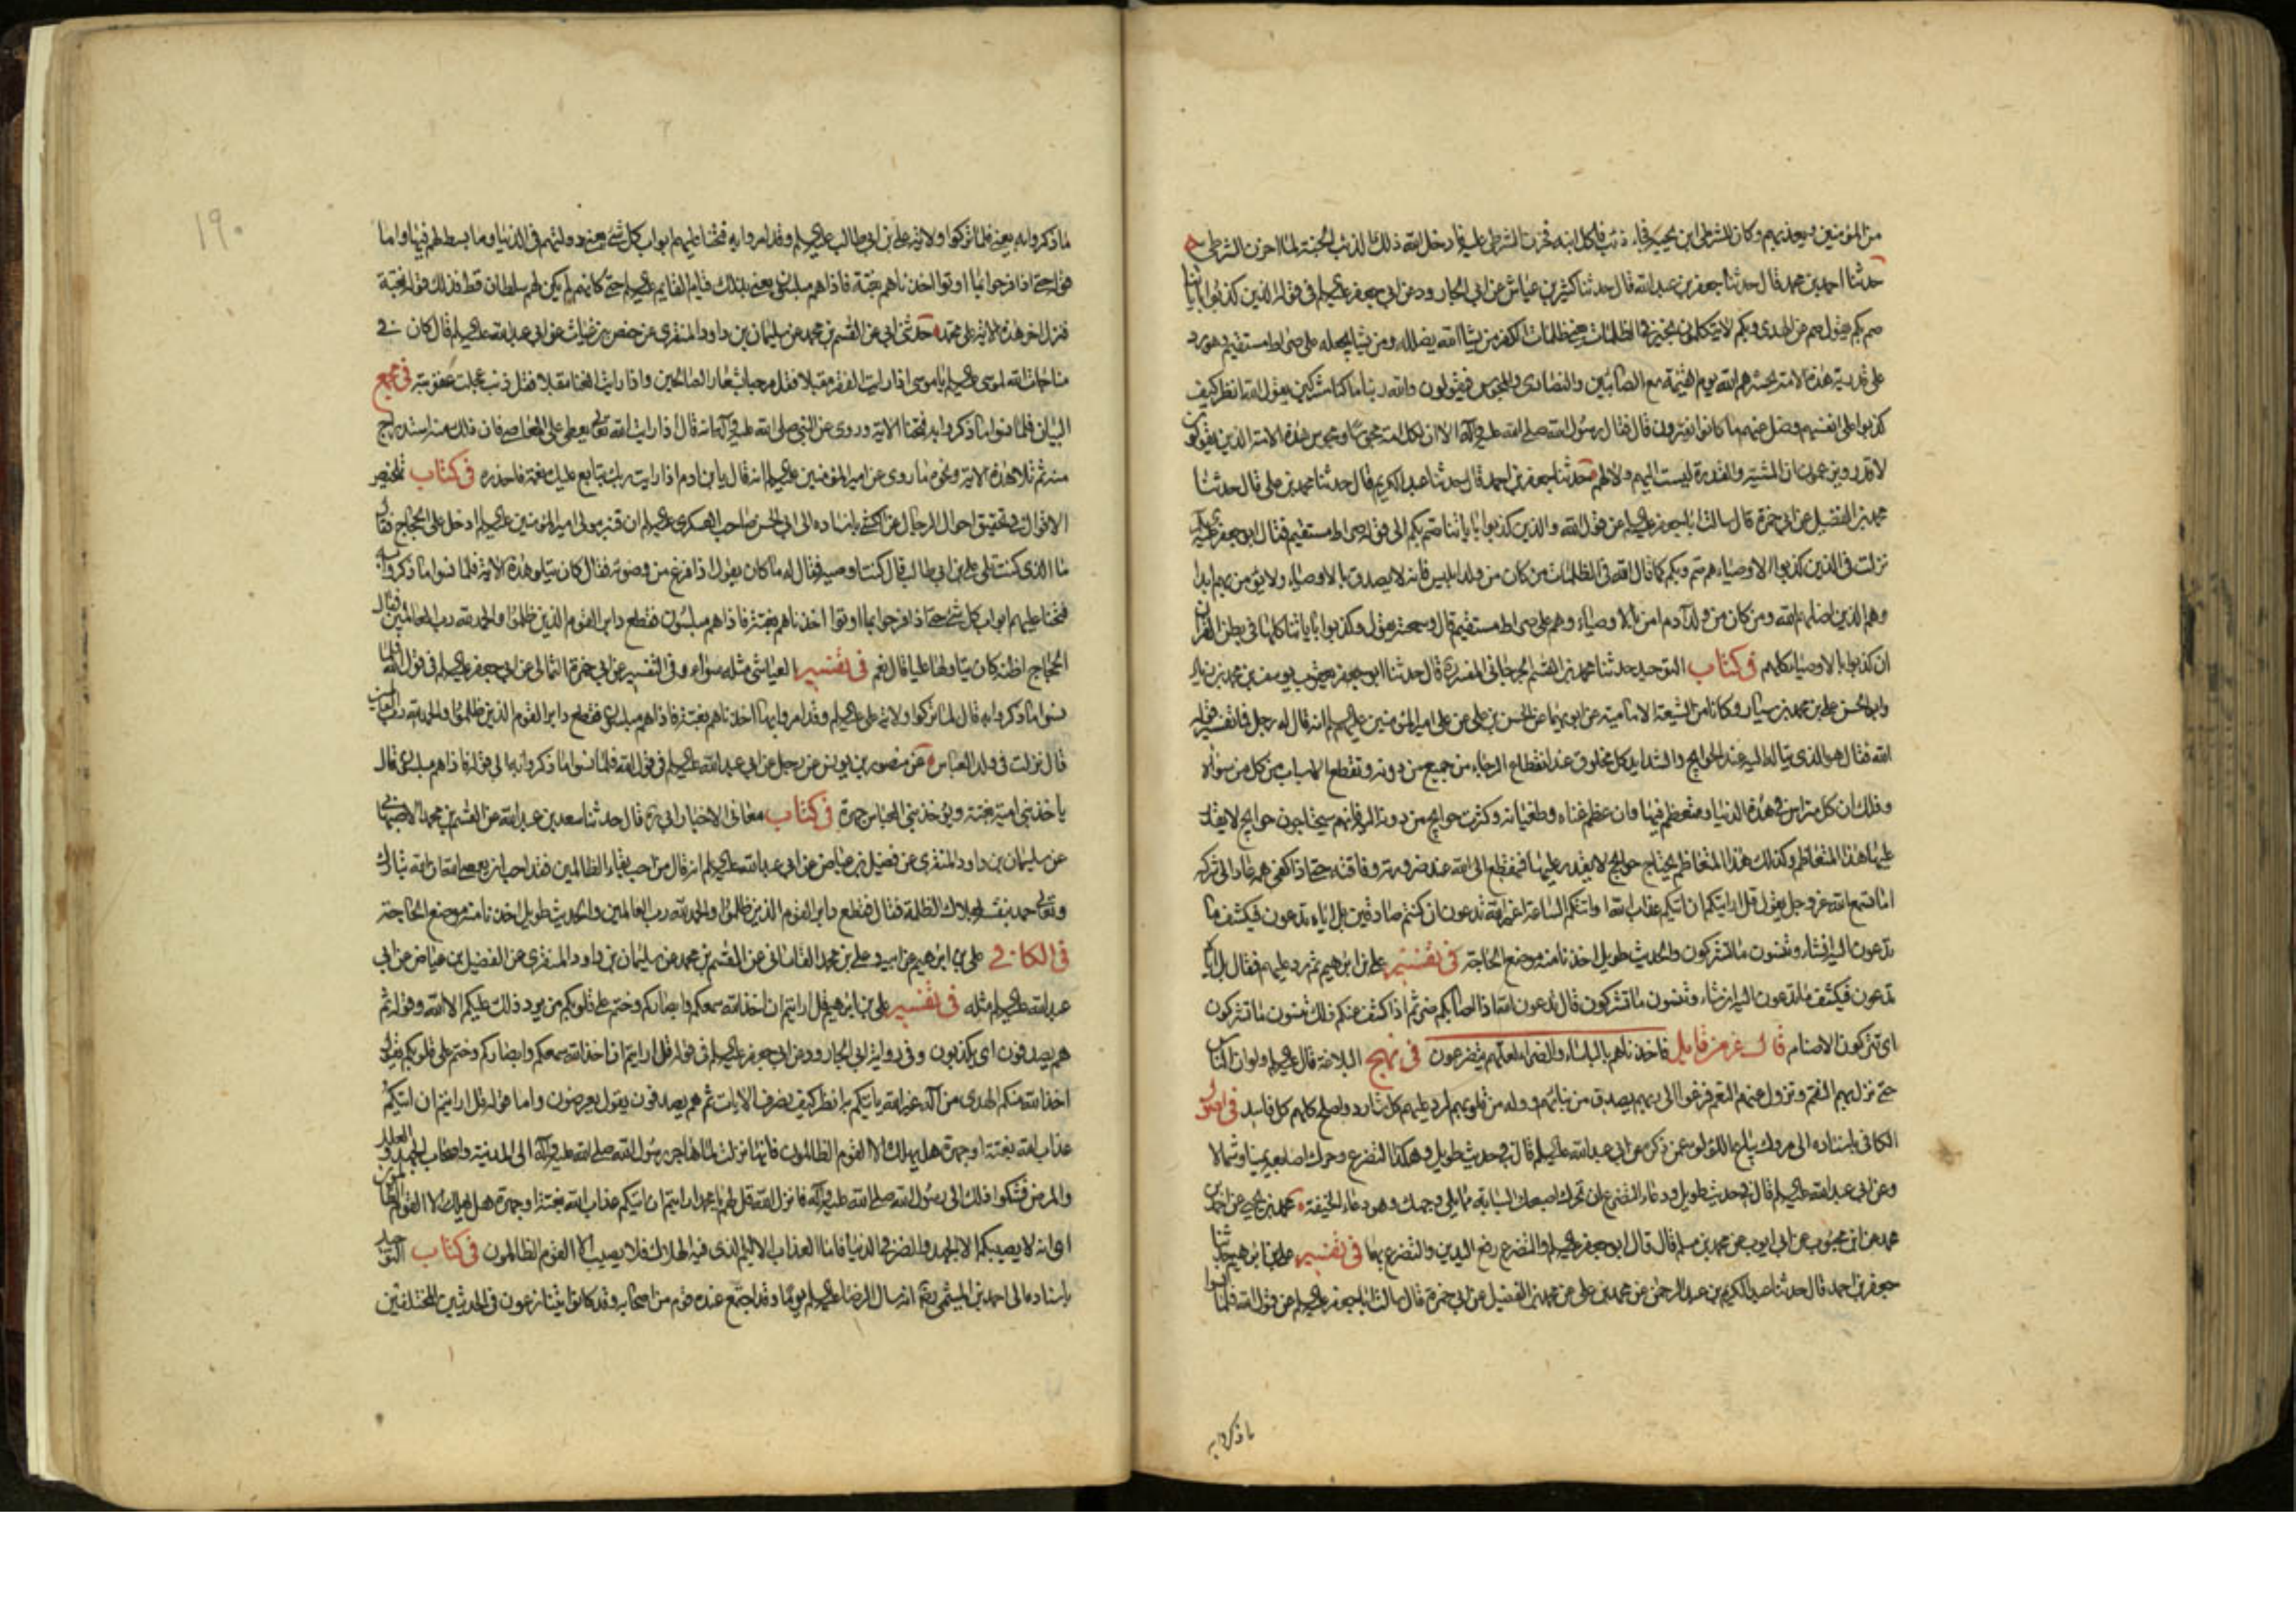 من المؤمنين ويعذبهم وكان للشرطي ابن يحبه فجاء ذئب فاكل ابنه فحزن الشرطي عليه فادخل الله ذلك الذئب الجنة لما احزن الشرطي
حدثنا احمد بن محمد قال حدثنا جعفر بن عبد الله قال حدثنا كثير بن عياش عن ابي الجارود عن ابي جعفر عليه السلام في قوله الذين كذبوا باياتنا
صم بكم يقول صم عن الهدى وبكم لا يتكلمون بخير في الظلمات يعني ظلمات الكفر من يشا الله يضلله ومن يشا يجعله على صراط مستقيم وهو رد
على قدرية هذه الامة يحشرهم الله يوم القيمة مع الصابئين والنصارى والمجوس فيقولون والله ربنا ما كنا مشركين يقول الله انظر كيف
كذبوا على انفسهم وضل عنهم ما كانوا يفترون قال فقال رسول الله صلى الله عليه وآله الا ان لكل امة مجوسا ومجوس هذه الامة الذين يقولون
لا قدر ويزعمون ان المشية والقدرة ليست اليهم ولا لهم حدثنا جعفر بن احمد قال حدثنا عبد الكريم قال حدثنا محمد بن علي قال حدثنا
محمد بن الفضيل عن ابي حمزة قال سالت ابا جعفر عليه السلام عن قول الله والذين كذبوا باياتنا صم بكم الى قوله صراط مستقيم فقال ابو جعفر عليه السلام
نزلت في الذين كذبوا الاوصياء هم صم وبكم كما قال الله في الظلمات من كان من ولد ابليس فانه لا يصدق بالاوصياء ولا يؤمن بهم ابدا
وهم الذين اضلهم الله ومن كان من ولد آدم امن بالاوصياء وهم على صراط مستقيم قال وسمعته يقول وكذبوا باياتنا كلها في بطن القران
ان كذبوا بالاوصياء كلهم في كتاب التوحيد حدثنا محمد بن القسم الجرجاني المفسر قال حدثنا ابو جعفر يعقوب يوسف بن محمد بن زياد
وابو الحسن علي بن محمد بن سيار وكانا من الشيعة الامامية عن ابويهما عن الحسن بن علي عن علي امير المؤمنين عليهم السلام انه قال له رجل فما تفسير قوله
الله فقال هو الذي يتاله اليه عند الحوايج والشدايد كل مخلوق عند انقطاع الرجاء من جميع من دونه وتقطع الاسباب من كل من سواه
وذلك ان كل متراس في هذه الدنيا ومتعظم فيها وان عظم غناه وطغيانه وكثرت حوايج من دونه اليه فانهم سيحتاجون حوايج لا يقدر
عليها هذا المتعاظم وكذلك هذا المتعاظم يحتاج حوايج لا يقدر عليها فينقطع الى الله عند ضرورته وفاقته حتى اذا كفى همه عاد الى شركه
اما تسمع الله عز وجل يقول قل ارايتكم ان اتيكم عذاب الله او اتتكم الساعة اغير الله تدعون ان كنتم صادقين بل اياه تدعون فيكشف ما
تدعون اليه ان شاء وتنسون ما تشركون والحديث طويل اخذنا منه موضع الحاجة في تفسير علي بن ابراهيم ثم رد عليهم فقال بل اياه
تدعون فيكشف ما تدعون اليه ان شاء وتنسون ما تشركون قال تدعون الله اذا اصابكم ضر ثم اذا كشف عنكم ذلك تنسون ما تشركون
اى تتركون الاصنام قال عز من قايل فاخذناهم بالباساء والضراء لعلهم يتضرعون في نهج البلاغة قال عليه السلام ولو ان الناس
حتى تنزل بهم النقم وتزول عنهم النعم فزعوا الى ربهم بصدق من نياتهم ووله من قلوبهم لرد عليهم كل شارد واصلح كلهم كل فاسد في اصول
الكافي باسناده الى مروك بياع اللؤلؤ عمن ذكره عن ابي عبد الله عليه السلام قال في حديث طويل وهكذا التضرع وحرك اصابعه يمينا وشمالا
وعن ابي عبد الله عليه السلام قال في حديث طويل ودعاء التضرع ان تحرك اصبعك السبابة مما يلي وجهك وهو دعاء الخيفة محمد بن يحيى عن احمد بن
محمد عن ابن محبوب عن ابي ايوب عن محمد بن مسلم قال قال ابو جعفر عليه السلام والتضرع رفع اليدين والتضرع بهما في تفسير علي بن ابراهيم حدثنا
جعفر بن احمد قال حدثنا عبد الكريم بن عبد الرحمن عن محمد بن علي عن محمد بن الفضيل عن ابي حمزة قال سالت ابا جعفر عليه السلام عن قول الله فلما نسوا
ما ذكروا به
١٩٠
ما ذكروا به يعني فلما تركوا ولاية علي بن ابي طالب عليه السلام وقد امروا به فتحنا عليهم ابواب كل شئ يعني دولتهم في الدنيا وما بسط لهم فيها واما
قوله حتى اذا فرحوا بما اوتوا اخذناهم بغتة فاذا هم مبلسون يعني بذلك قيام القايم عليه السلام حتى كانهم لم يكن لهم سلطان قط فذلك قوله بغتة
فنزل اخر هذه الاية على محمد حدثني ابي عن القسم بن محمد عن سليمان بن داود المنقري عن حفص بن غياث عن ابي عبد الله عليه السلام قال كان في
مناجات الله لموسى عليه السلام يا موسى اذا رايت الفقر مقبلا فقل مرحبا بشعار الصالحين واذا رايت الغنا مقبلا فقل ذنب عجلت عقوبته في مجمع
البيان فلما نسوا ما ذكروا به فتحنا الاية وروى عن النبي صلى الله عليه وآله انه قال اذا رايت الله تعالى يعطي على المعاصي فان ذلك منه استدراج
منه ثم تلا هذه الاية ونحوه ما روى عن امير المؤمنين عليه السلام انه قال يا بن ادم اذا رايت ربك يتابع عليك نعمه فاحذره في كتاب تلخيص
الاقوال في تحقيق احوال الرجال عن الكشي باسناده الى ابي الحسن صاحب العسكري عليه السلام ان قنبر مولى امير المؤمنين عليه السلام ادخل على الحجاج فقال
ما الذي كنت تلي علي بن ابي طالب قال كنت اوضيه فقال له ما كان يقول اذا فرغ من وضوئه فقال كان يتلو هذه الاية فلما نسوا ما ذكروا به
فتحنا عليهم ابواب كل شئ حتى اذا فرحوا بما اوتوا اخذناهم بغتة فاذا هم مبلسون فقطع دابر القوم الذين ظلموا والحمد لله رب العالمين فقال
الحجاج اظنه كان يتاولها علينا قال نعم في تفسير العياشي مثله سواء وفي التفسير عن ابي حمزة الثمالي عن ابي جعفر عليه السلام في قول الله فلما
نسوا ما ذكروا به قال لما تركوا ولاية علي عليه السلام وقد امروا بها اخذناهم بغتة فاذا هم مبلسون فقطع دابر القوم الذين ظلموا والحمد لله رب العالمين
قال نزلت في ولد العباس عن منصور بن يونس عن رجل عن ابي عبد الله عليه السلام في قول الله فلما نسوا ما ذكروا به الى قوله فاذا هم مبلسون قال
ياخذ بني امية بغتة ويؤخذ بني العباس جهرة في كتاب معاني الاخبار ابي ره قال حدثنا سعد بن عبد الله عن القسم بن محمد الاصبهاني
عن سليمان بن داود المنقري عن فضيل بن عياض عن ابي عبد الله عليه السلام انه قال من احب بقاء الظالمين فقد احب ان يعصى الله ان الله تبارك
وتعالى حمد بنفسه بهلاك الظلمة فقال فقطع دابر القوم الذين ظلموا والحمد لله رب العالمين والحديث طويل اخذنا منه موضع الحاجة
في الكافي علي بن ابراهيم عن ابيه وعلي بن محمد القاساني عن القسم بن محمد عن سليمان بن داود المنقري عن الفضيل بن عياض عن ابي
عبد الله عليه السلام مثله في تفسير علي بن ابراهيم قل ارايتم ان اخذ الله سمعكم وابصاركم وختم على قلوبكم من يرد ذلك عليكم الا الله وقوله ثم
هم يصدفون اى يكذبون وفي رواية ابي الجارود عن ابي جعفر عليه السلام في قوله قل ارايتم ان اخذ الله سمعكم وابصاركم وختم على قلوبكم يقول
اخذ الله منكم الهدى من آله غير الله ياتيكم به انظر كيف نصرف الايات ثم هم يصدفون يقول يعرضون واما قوله قل ارايتم ان اتيكم
عذاب الله بغتة او جهرة هل يهلك الا القوم الظالمون فانها نزلت لما هاجر رسول الله صلى الله عليه وآله الى المدينة واصحاب الجهد والعلل
والمرض فشكوا ذلك الى رسول الله صلى الله عليه وآله فانزل الله قل لهم يا محمد ارايتم ان اتيكم عذاب الله بغتة او جهرة هل يهلك الا القوم الظالمون
اى انه لا يصيبكم الا الجهد والضر في الدنيا فاما العذاب الاليم الذي فيه الهلاك فلا يصيب الا القوم الظالمون في كتاب التوحيد
باسناده الى احمد بن الميثمي رضه انه سال الرضا عليه السلام يوما وقد اجتمع عنده قوم من اصحابه وقد كانوا يتنازعون في الحديثين المختلفين